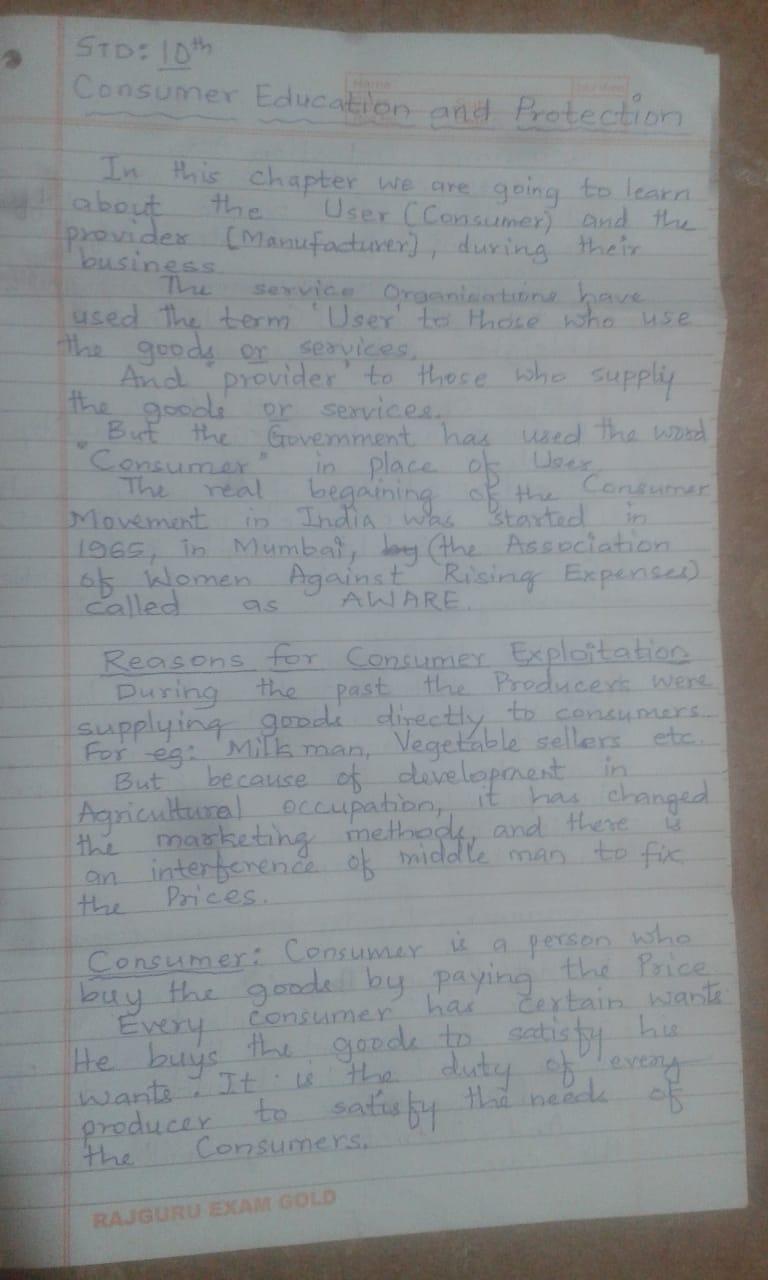 STD: 10th
Consumer Education and Protection
In this chapter we are going to learn
about the User (Consumer) and the
provider (Manufacturer), during their
business
The service Organisations have
used the term 'User' to those who use
the goods or services.
And 'provider' to those who supply
the goods or services.
But the Government has used the word
"Consumer" in place of User
The real begaining of the Consumer
Movement in India was started in
1965, in Mumbai, by (the Association
of Women Against Rising Expenses)
called as AWARE.
Reasons for Consumer Exploitation
During the past the Producers were
supplying goods directly to consumers.
For eg: Milk man, Vegetable sellers etc.
But because of development in
Agricultural occupation, it has changed
the marketing methods, and there is
an interference of middle man to fix
the Prices.
Consumer: Consumer is a person who
buy the goods by paying the Price
Every consumer has certain wants
He buys the goods to satisfy his
wants. It is the duty of every
producer to satisfy the needs of
the Consumers.
RAJGURU EXAM GOLD